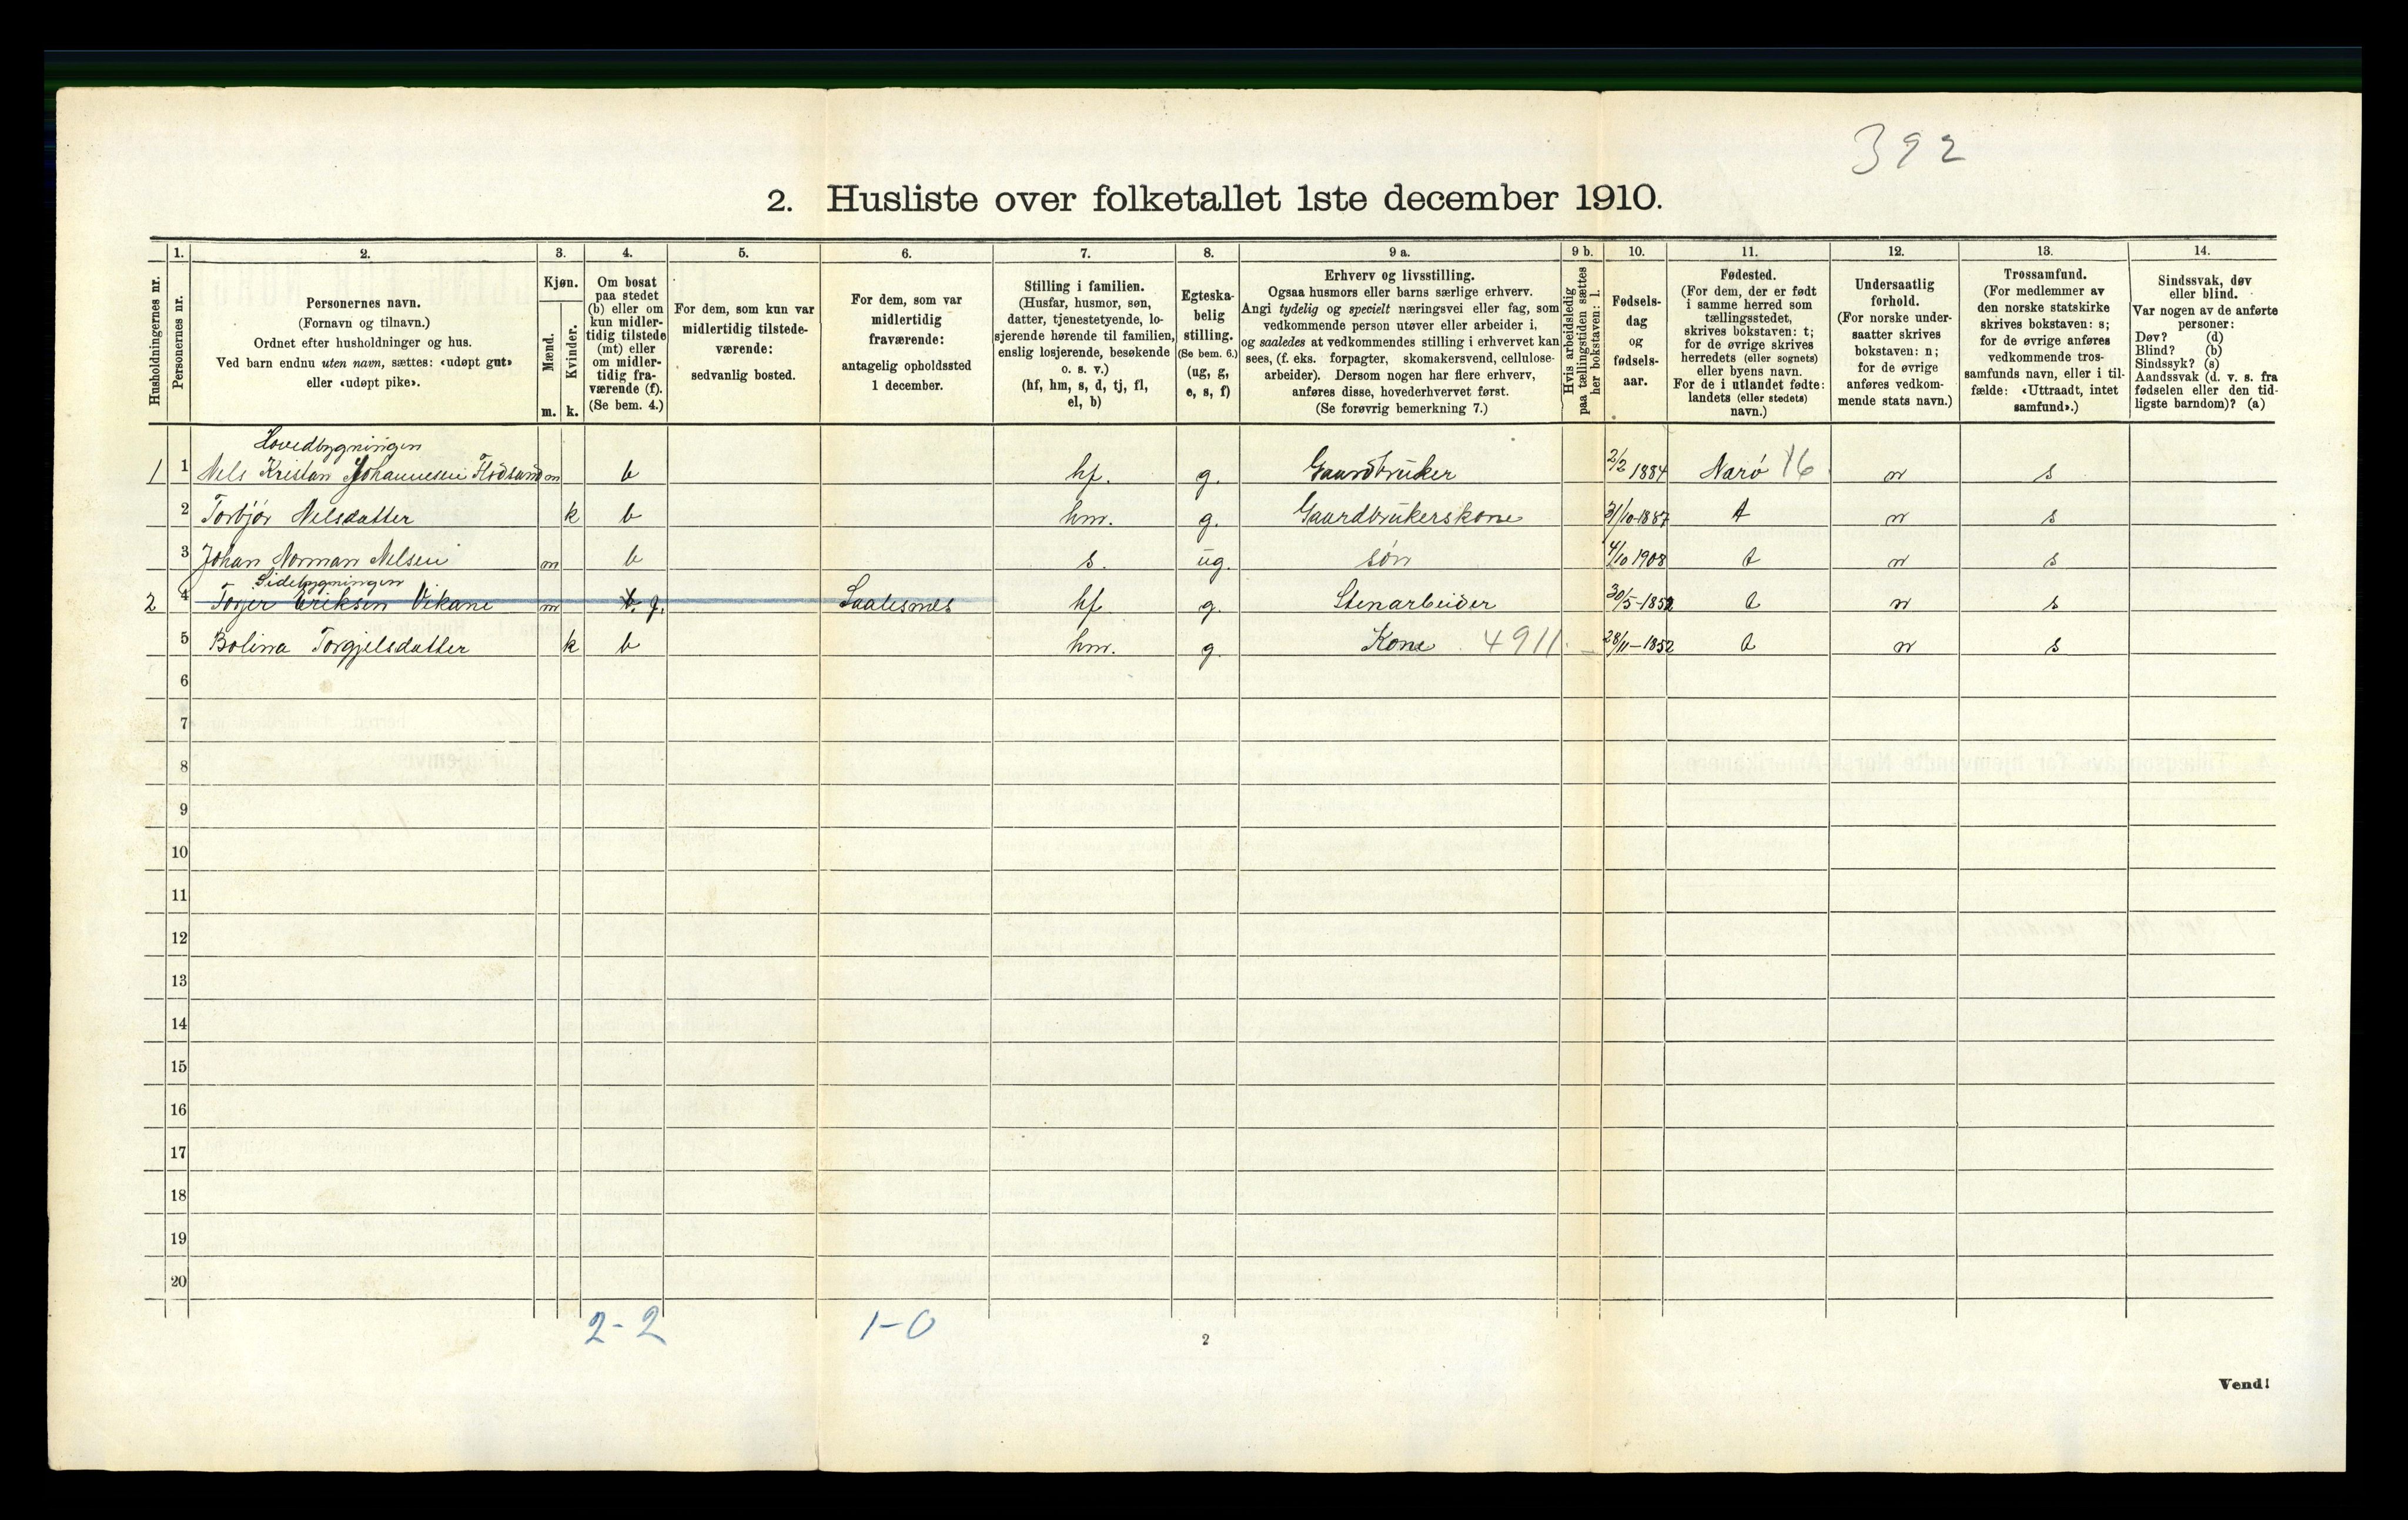 392
2. Husliste over folketallet 1ste december 1910.
Husholdningernes nr.
1.
Personernes nr.
2.
Personernes navn.
(Fornavn og tilnavn.)
Ordnet efter husholdninger og hus.
Ved barn endnu uten navn, sættes: «udøpt gut»
eller «udøpt pike».
3.
Kjøn.
Mænd.
Kvinder.
m. k.
4.
Om bosat
paa stedet
(b) eller om
kun midler-
tidig tilstede
(mt) eller
om midler-
tidig fra-
værende (f).
(Se bem. 4.)
5.
For dem, som kun var
midlertidig tilstede-
værende:
sedvanlig bosted.
6.
For dem, som var
midlertidig
fraværende:
antagelig opholdssted
1 december.
7.
Stilling i familien.
(Husfar, husmor, søn,
datter, tjenestetyende, lo-
sjerende hørende til familien,
enslig losjerende, besøkende
o. s. v.)
(hf, hm, s, d, tj, fl,
el, b)
8.
Egteska-
belig
stilling.
(Se bem. 6.)
(ug, g,
e, s, f)
9 a.
Erhverv og livsstilling.
Ogsaa husmors eller barns særlige erhverv.
Angi tydelig og specielt næringsvei eller fag, som
vedkommende person utøver eller arbeider i,
og saaledes at vedkommendes stilling i erhvervet kan
sees, (f. eks. forpagter, skomakersvend, cellulose-
arbeider). Dersom nogen har flere erhverv,
anføres disse, hovederhvervet først.
(Se forøvrig bemerkning 7.)
9 b.
Hvis arbeidsledig
paa tællingstiden sættes
her bokstaven: l.
10.
Fødsels-
dag
og
fødsels-
aar.
11.
Fødested.
(For dem, der er født
i samme herred som
tællingsstedet,
skrives bokstaven: t;
for de øvrige skrives
herredets (eller sognets)
eller byens navn.
For de i utlandet fødte:
landets (eller stedets)
navn.)
12.
Undersaatlig
forhold.
(For norske under-
saatter skrives
bokstaven: n;
for de øvrige
anføres vedkom-
mende stats navn.)
13.
Trossamfund.
(For medlemmer av
den norske statskirke
skrives bokstaven: s;
for de øvrige anføres
vedkommende tros-
samfunds navn, eller i til-
fælde: «Uttraadt, intet
samfund».)
14.
Sindssvak, døv
eller blind.
Var nogen av de anførte
personer:
Døv? (d)
Blind? (b)
Sindssyk? (s)
Aandssvak (d. v. s. fra
fødselen eller den tid-
ligste barndom)? (a)
Hovedbygningen
1 1 Nels Kristan Johannesen Flodsund m b hf. g. Gaardbruker 2/2 1884 Narö 16 n s
2 Torbjør Nelsdatter k b hm. g. Gaardbrukerskone 31/10-1887 t n s
3 Johan Norman Nelsen m b s. ug. søn 4/10 1908 t n s
Sidebygningen
2 4 Torjer Eriksen Vikane m b f. hf g. Stenarbeider 30/5-1852 t n s
5 Bolina Torgjelsdatter k b hm. g. Kone 4911. 28/11-1852 t n s
6
7
8
9
10
11
12
13
14
15
16
17
18
19
20
2-2 1-0
2
Vend!